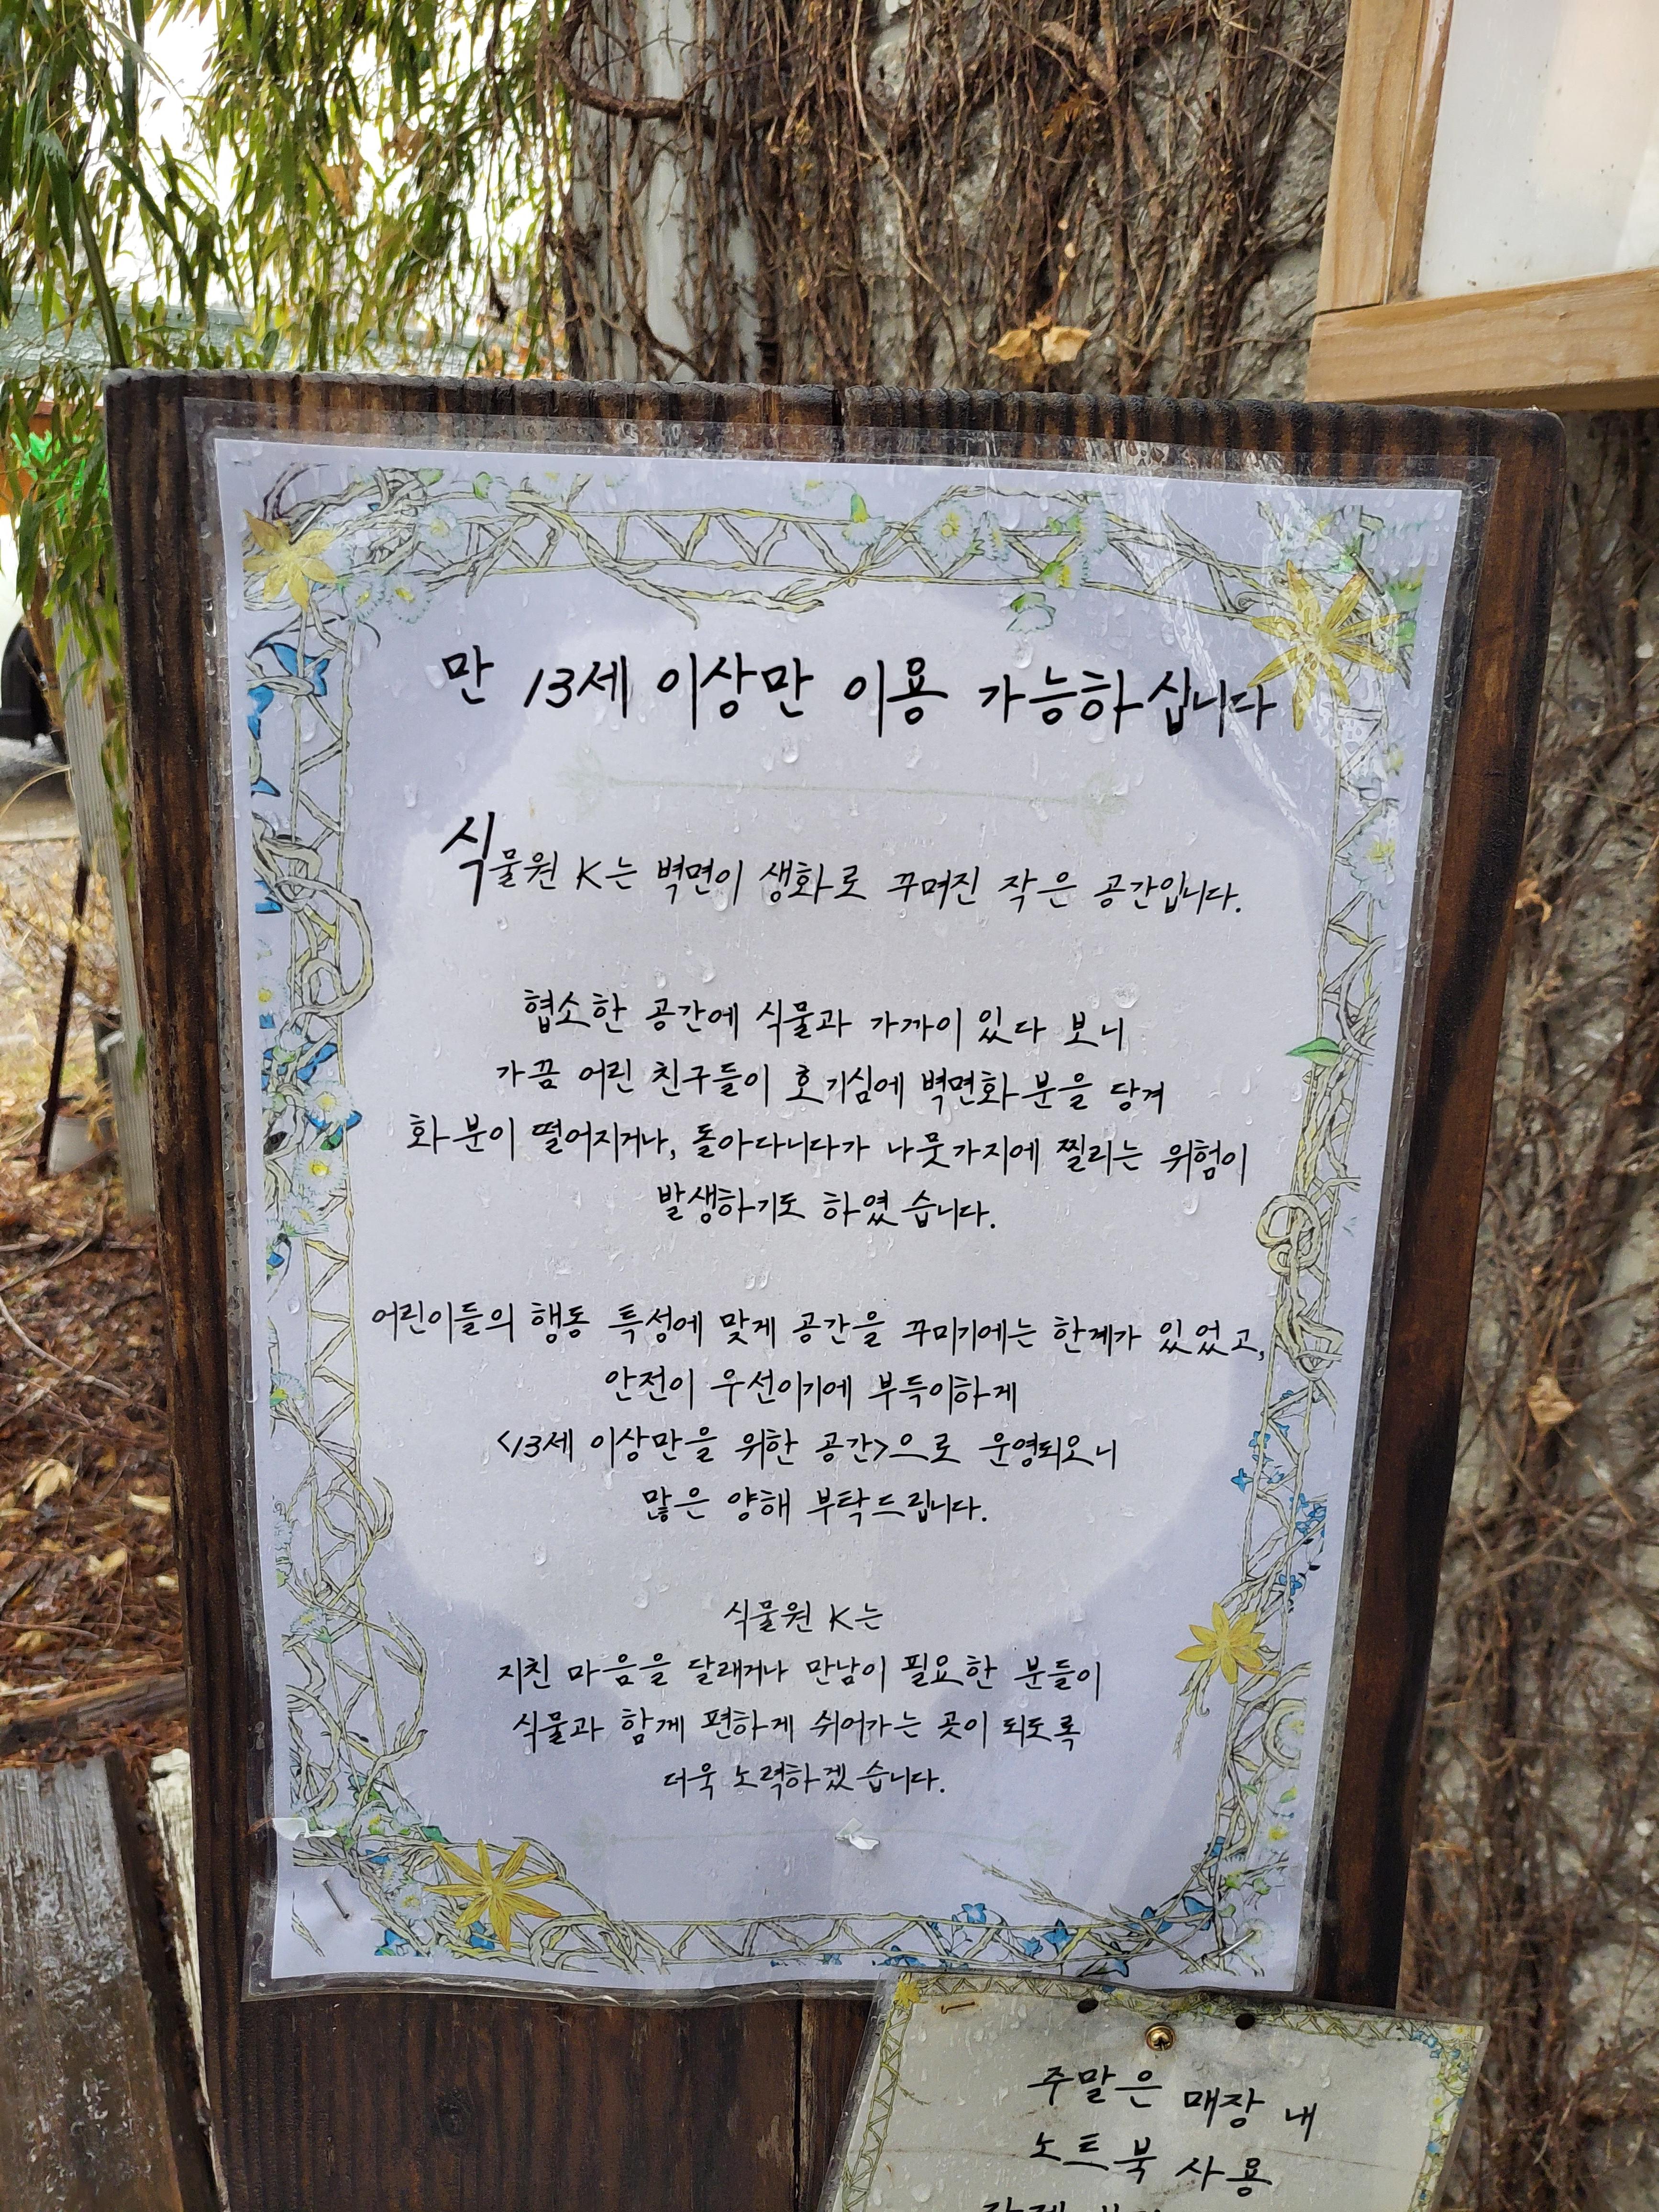 만 13세 이상만 이용 가능하십니다
식물원 K는 벽면이 생화로 꾸며진 작은 공간입니다.
협소한 공간에 식물과 가까이 있다 보니
가끔 어린 친구들이 호기심에 벽면화분을 당겨
화분이 떨어지거나, 돌아다니다가 나뭇가지에 찔리는 위험이
발생하기도 하였습니다.
어린이들의 행동 특성에 맞게 공간을 꾸미기에는 한계가 있었고,
안전이 우선이기에 부득이하게
<13세 이상만을 위한 공간>으로 운영되오니
많은 양해 부탁드립니다.
식물원 K는
지친 마음을 달래거나 만남이 필요한 분들이
식물과 함께 편하게 쉬어가는 곳이 되도록
더욱 노력하겠습니다.
주말은 매장 내
노트북 사용